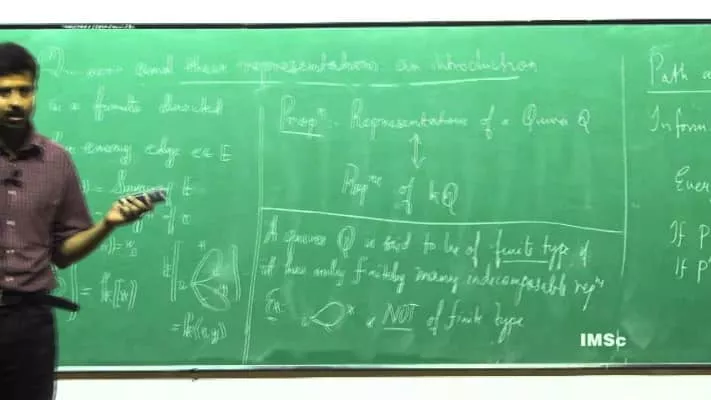 and their representations an introduction
is a finite directed
every edge e ∈ E
Propⁿ:- Representations of a Quiver Q
↕
Repⁿˢ of kQ
A quiver Q is said to be of finite type if
it has only finitely many indecomposable repⁿˢ
Ex
is NOT of finite type
= k[x]
= k⟨x,y⟩
Path a
Inform
Ever
If P
If P'
IMSc